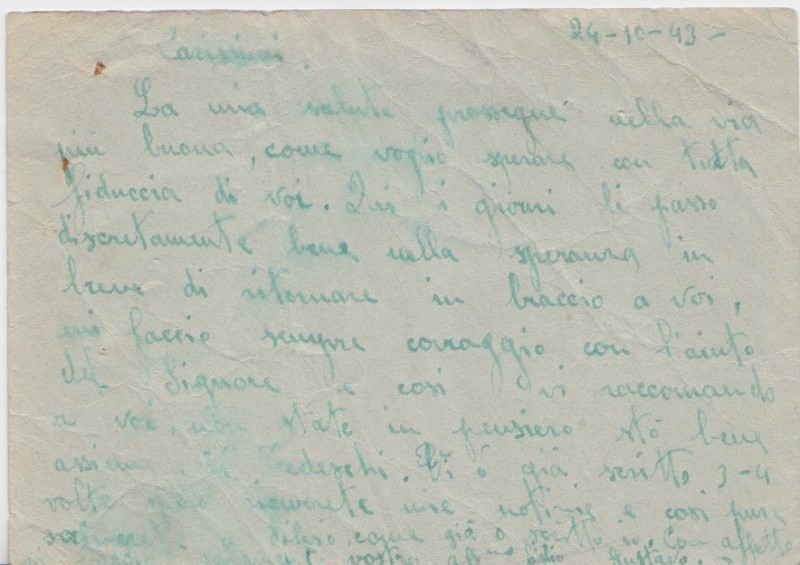 24-10-43-
Carissimi
La mia salute prosegue nella via
più buona, come voglio sperare con tutta
fiduccia di voi. Qui i giorni li passo
discretamente bene nella speranza in
breve di ritornare in braccio a voi,
mi faccio sempre corraggio con l'aiuto
del Signore e così vi raccomando
a voi, non state in pensiero stò bene
assieme ai Tedeschi. Vi ò già scritto 3-4
volte riceverete mie notizie e così pure
a Silvio, come già ò scritto io. Con affetto
vostro aff.mo Gustavo.